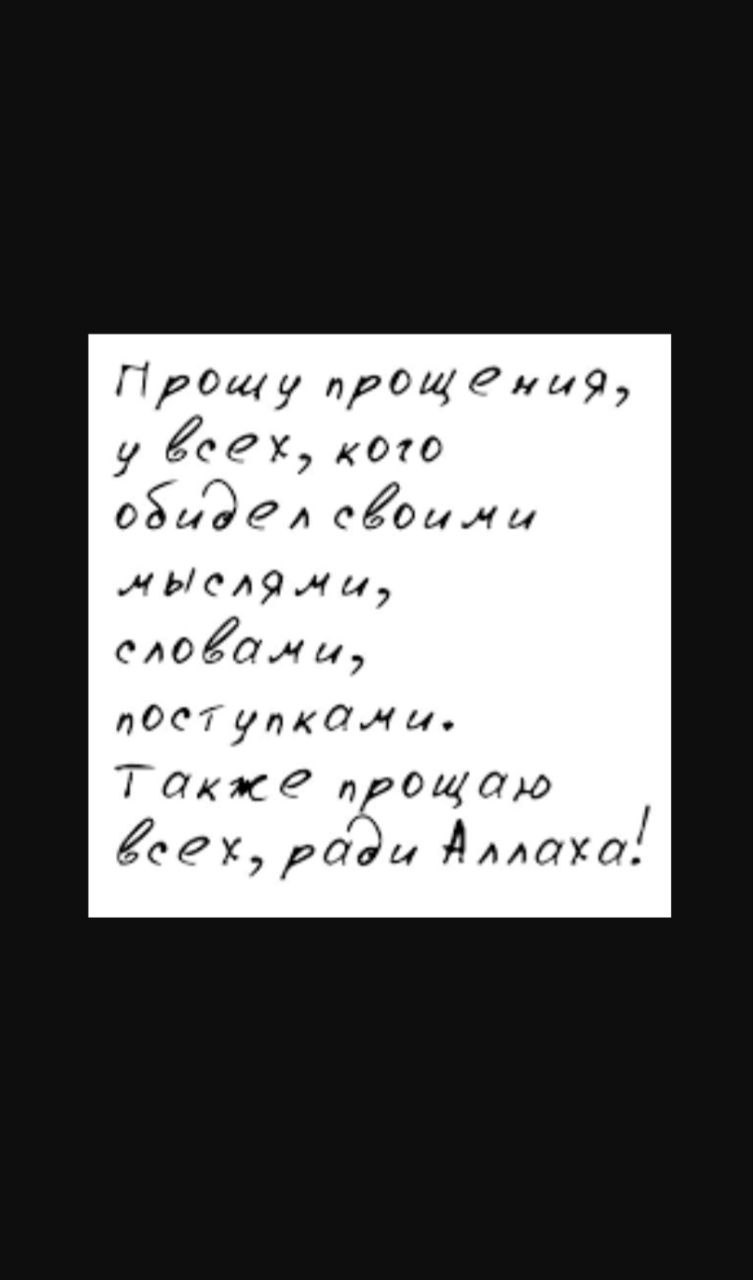 Прошу прощения,
у всех, кого
обидел своими
мыслями,
словами,
поступками.
Также прощаю
всех, ради Аллаха!